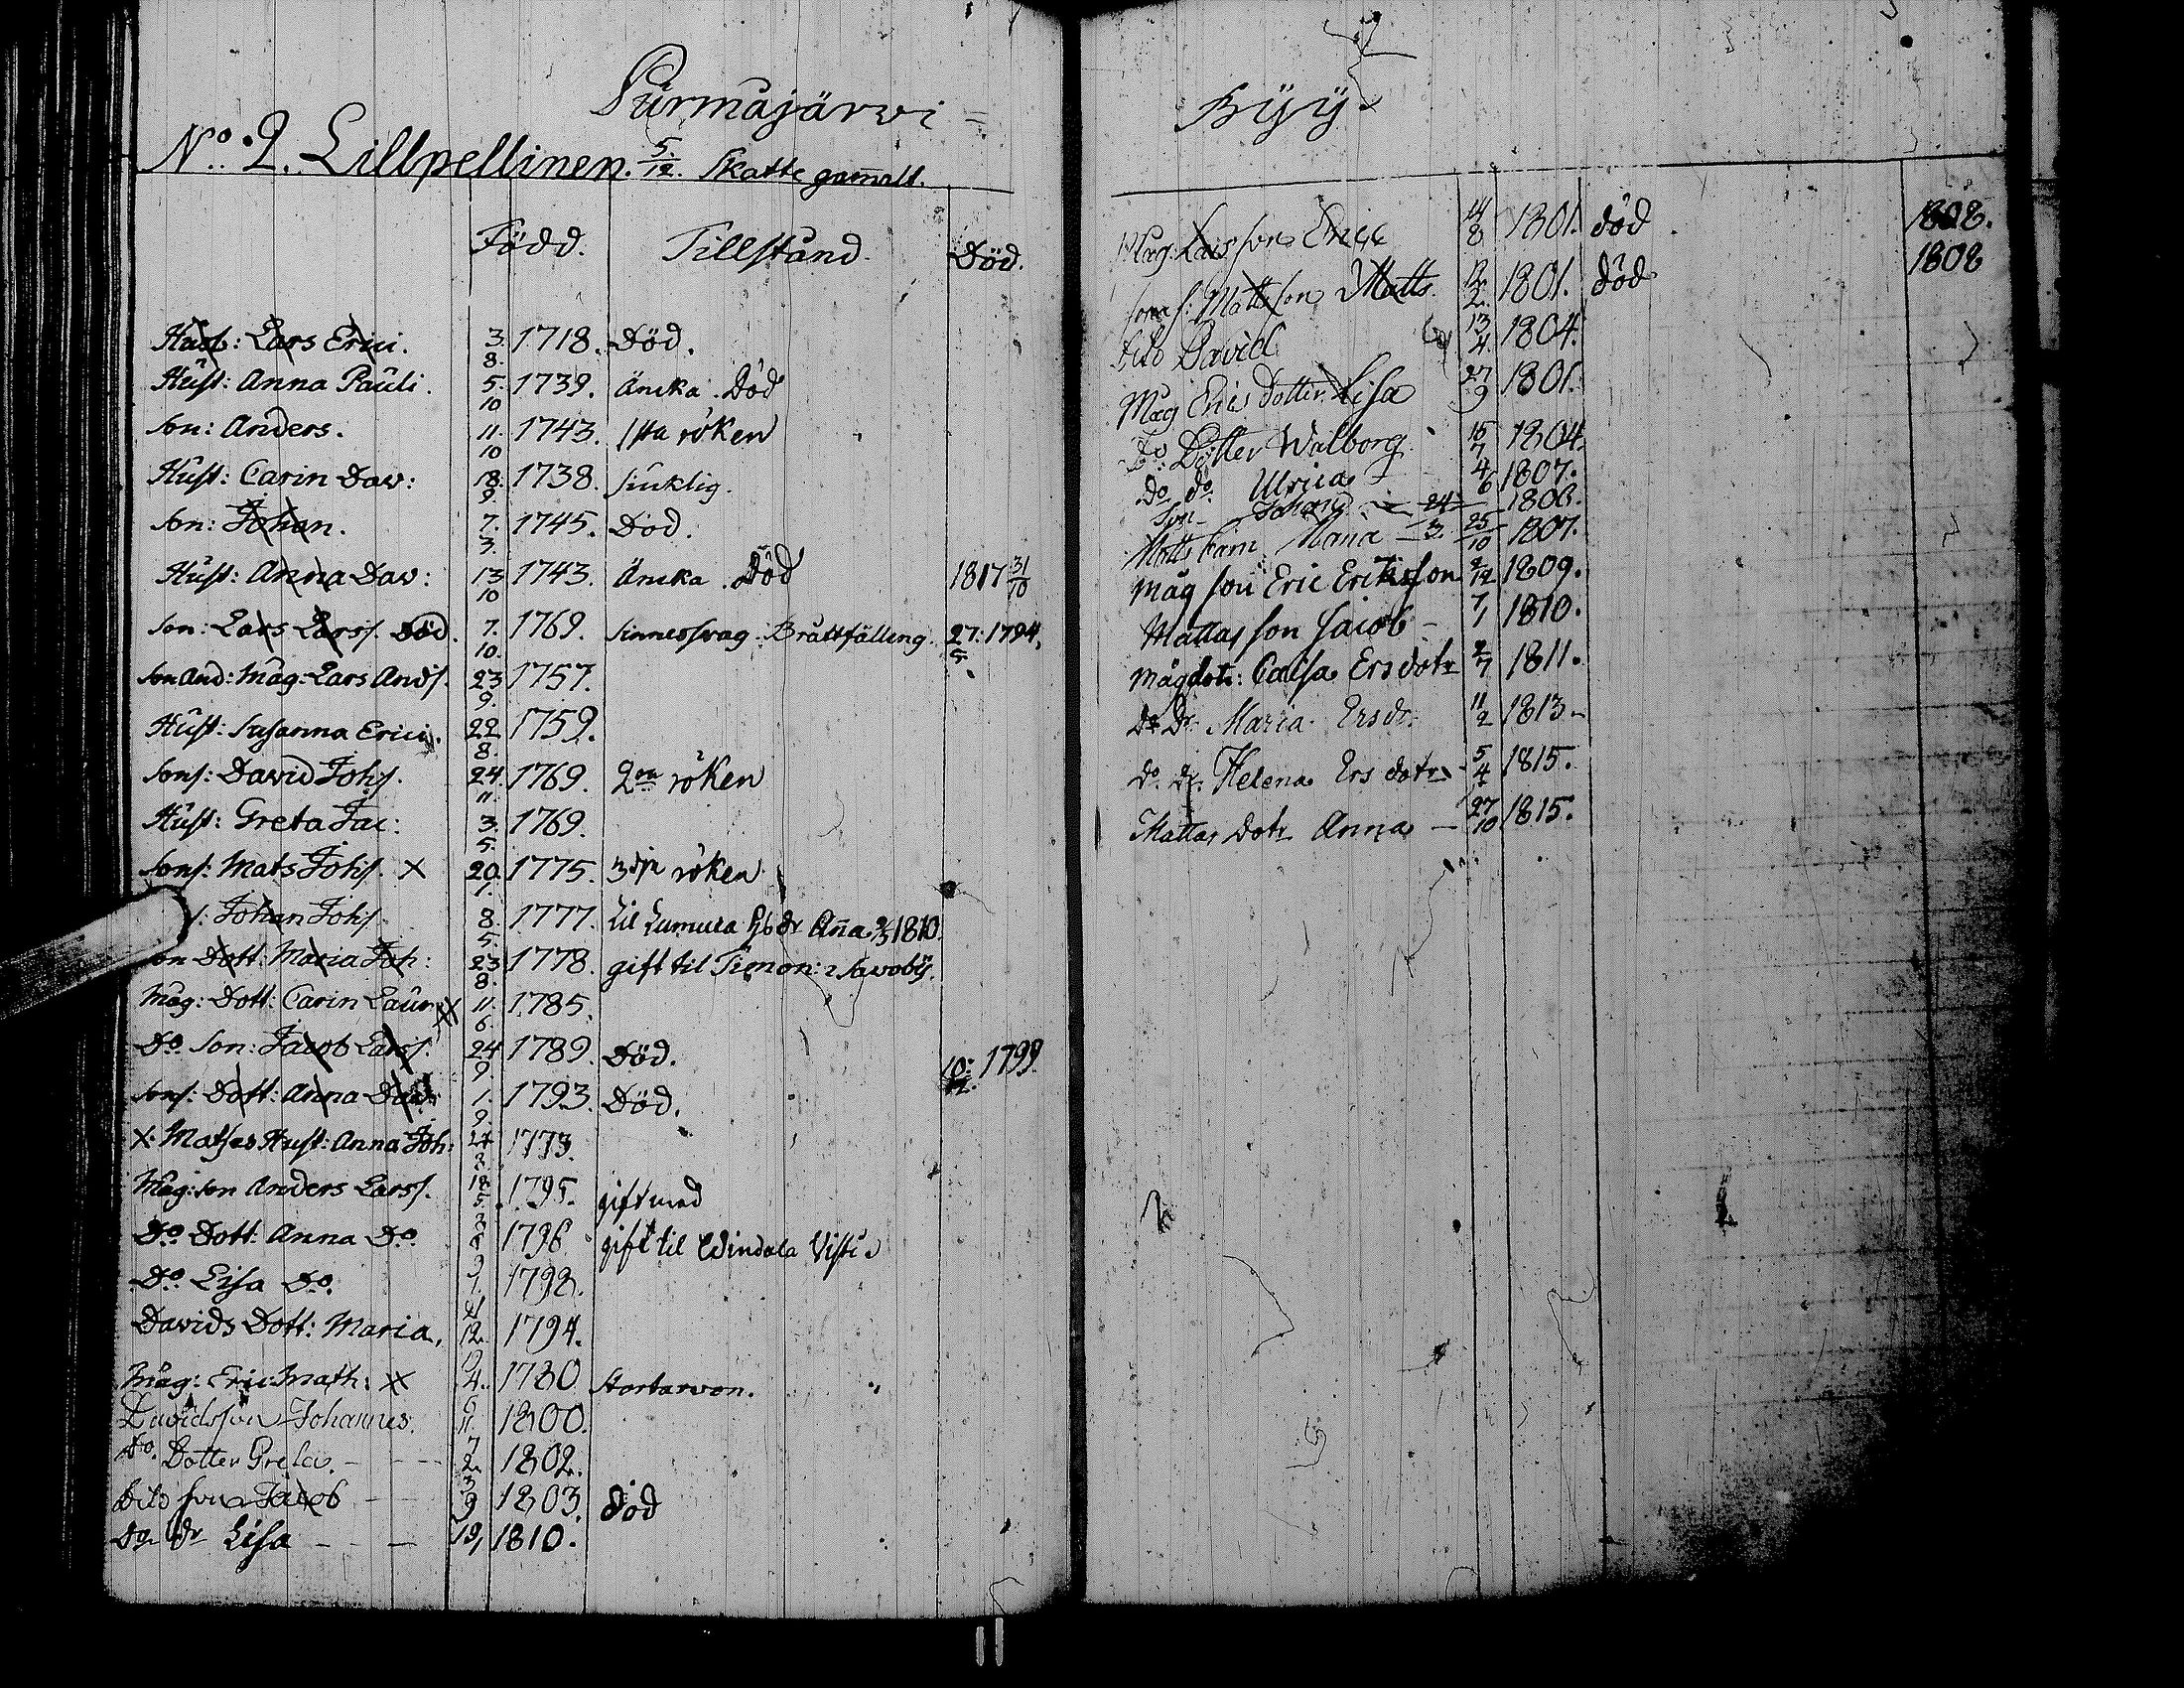 Purmåjärwi =
No. 2. Lillpellinen. 5/12. Skatte gamalt.
Född. Tillstånd. Död.
Husb: Lars Erici. 3. 8. 1718. Död.
Hust: Anna Pauli. 5. 10 1739. Äncka. Död
Son: Anders. 11. 10 1743. 1sta röken
Hust: Carin Dav: 18. 9. 1738. siuklig.
Son: Johan. 7. 3. 1745. Död.
Hust: Anna Dav: 13 10 1743. Äncka. Död 1817 31/10
Son: Lars Larss. Död. 7. 10. 1769. sinnessvag. Bråttfälling. 27: 5. 1794.
Son And: Måg: Lars Ands. 23 9. 1757.
Hust: Susanna Erici. 22 8. 1759.
Sons: David Johs. 24. 11. 1769. 2dra röken
Hust: Greta Jac: 3. 5. 1769.
Sons: Mats Johs. X 20. 1. 1775. 3dje röken
Johan Johs. 8. 5. 1777. til 1810.
Son Dott: Maria Joh: 23 8. 1778. gift til Timon: 2 Savoby.
Måg: Dott: Carin Laur XX 11. 6. 1785.
Do Son: Jacob Larss. 24 9 1789. Död. 10: 12. 1799.
Sons: Dott: Anna Dav: 1. 9. 1793. Död.
X: Matses Hust: Anna Joh: 1773.
Måg: son Anders Larss. 18. 5. 1795. gift med
Do. Dott: Anna Do. 1796 gift til
Do. Lisa Do. 1798.
Davids Dott: Maria, 12. 1794.
Måg: Eric Math: XX 4. 1780 Hortarvon.
Davidsson Johannes. 6 11. 1800.
Do. Dotter Greta. - - - 7 2. 1802.
dito son Jacob - - 3 9 1803. död
Do dr Lisa - - - 1810.
Byy.
Måg: Larsson Eric 14 8 1801. död 1808.
sons s: Mattsson Matts. 1801. död 1808
dito David 13 4. 1804.
Måg Erics dotter Lisa 27 9 1801.
Do: Dotter Walborg 15 7 1804.
Do do Ulrica 4 6 1807.
Son - Johan - 24 1806.
Matts barn Maria - 3. 25 10 1807.
Måg son Eric Ericksson 2 12 1809.
Mattas son Jacob - 7 1 1810.
Mågdotr: Caisa Ersdotr 2 7 1811.
Do Dr. Maria Ersdr. 11 2 1813 -
Do. Dr. Helena Ersdotr. 5 4 1815.
Mattas Dotr Anna - 27 10 1815.